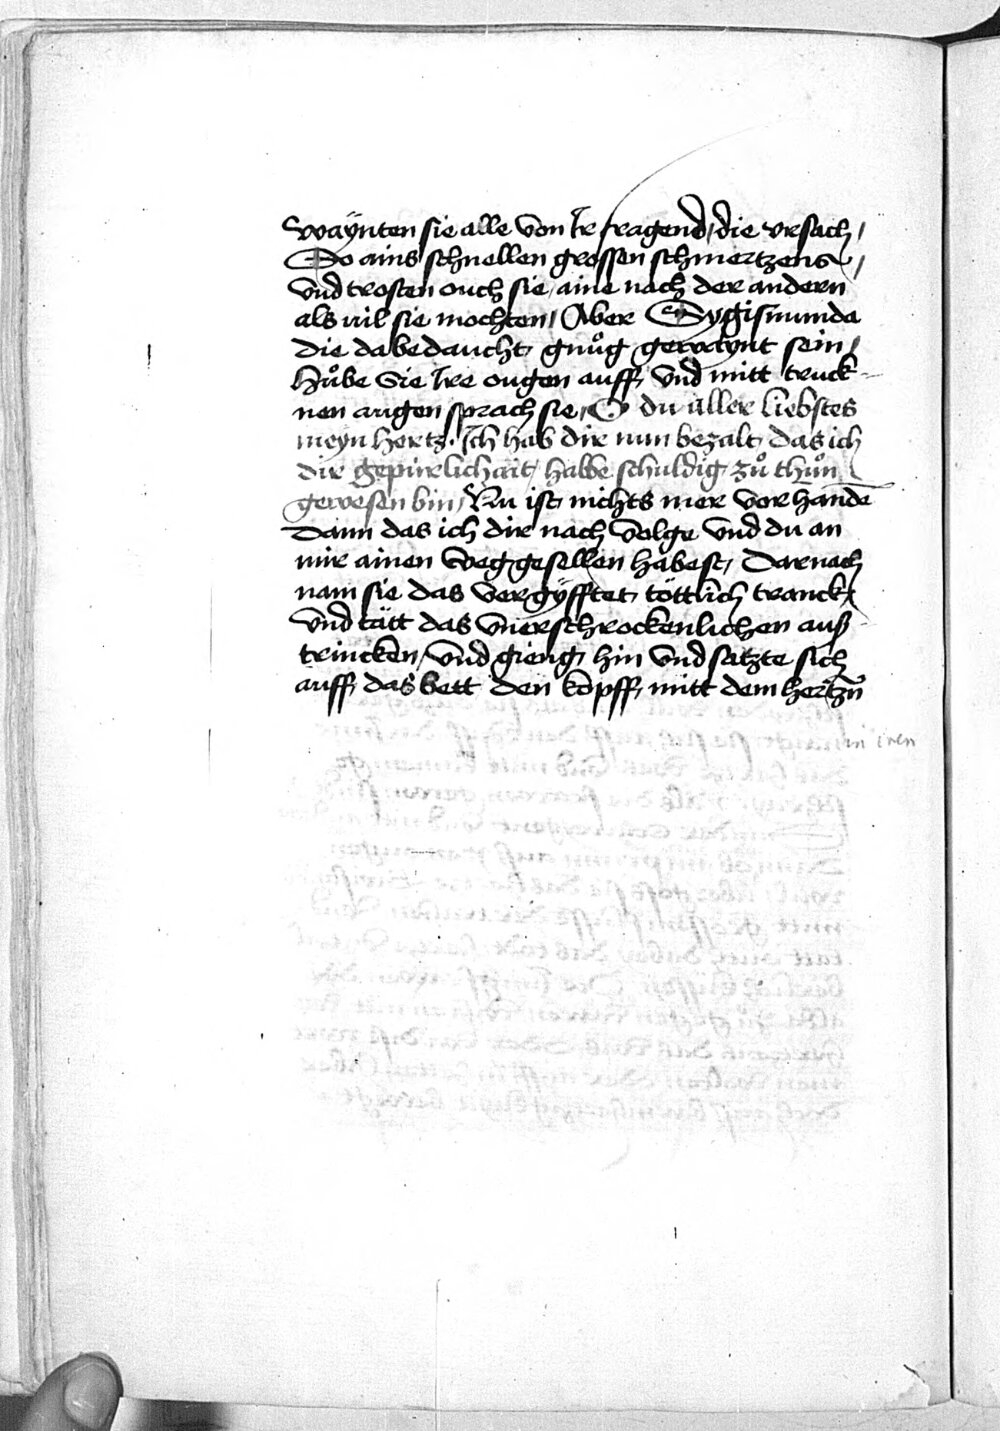 Waÿnten sie alle von Ir fragend / die vrsach /
So ains schnellen grossen schmertzens /
vnd trosten ouch sie / aine nach der andern
als vil sie mochten / Aber Sygismunda
die da bedaucht gnůg gewaÿnt sein /
Hůbe sie Ire ougen auff / vnd mitt truck-
nen augen sprach sie / O du aller liebstes
meyn hertz. Ich hab dir nun bezalt das ich
dir gepürlichait / halbe schuldig zů thůn
gewesen bin / Nu ist nichts mer vor hande
Dann das ich dir nach volge vnd du an
mir ainen weg gesellen habest / Darnach
nam sie das vergÿfftet töttlich tranck /
vnd tätt das vnerschrockenlichen auß
trincken / vnd gieng hin vnd satzte sich
auff das bett den kopff mitt dem hertzn̄
in iren